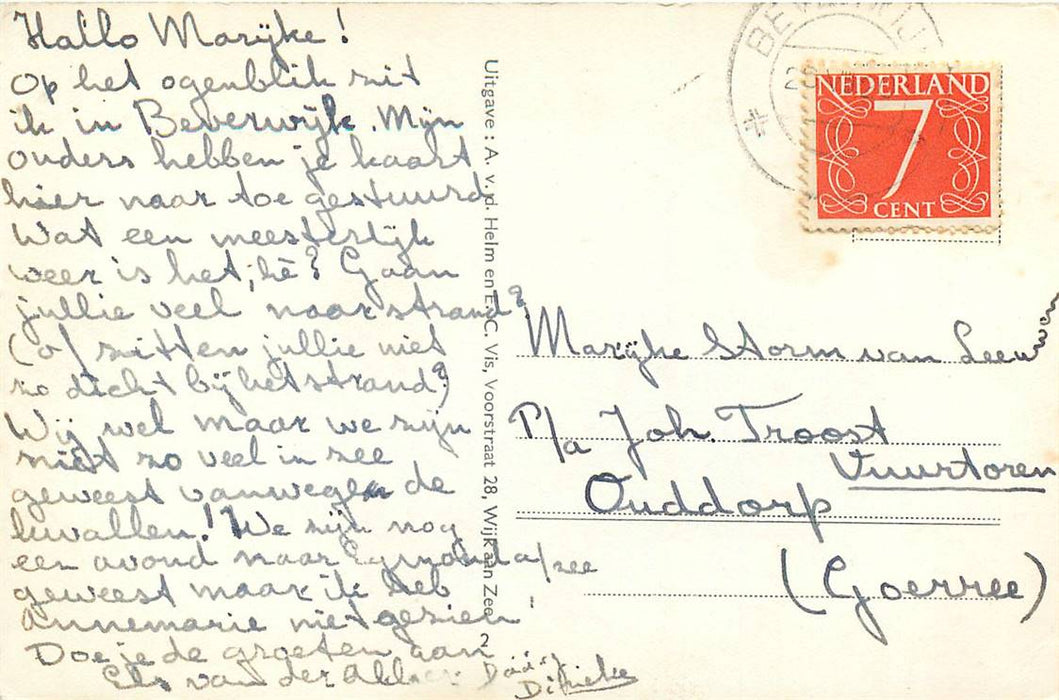 Hallo Marijke!
Op het ogenblik zit
ik in Beverwijk. Mijn
ouders hebben je kaart
hier naar toe gestuurd
Wat een meesterlijk
weer is het, hè? Gaan
jullie veel naar strand?
(of zitten jullie niet
zo dicht bij het strand?)
Wij wel maar we zijn
niet zo veel in zee
geweest vanwege de
kwallen! We zijn nog
een avond naar Egmond a/zee
geweest maar ik heb
Annemarie niet gezien!
Doe je de groeten aan
Els van der
Uitgave: A. v.d. Helm en E. C. Vis, Voorstraat 28, Wijk aan Zee 2
NEDERLAND
7
CENT
Marijke Storm van Leeuwen
P/a Joh. Troost
Vuurtoren
Ouddorp
(Goerree)